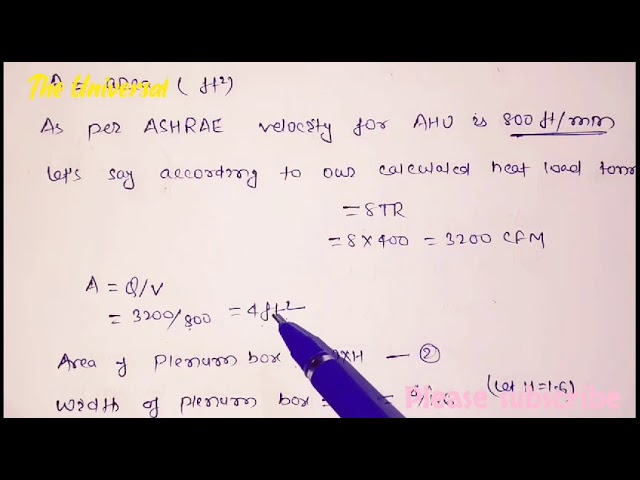 The Universal
A = area (ft²)
As per ASHRAE velocity for AHU is 800 ft/min
let's say according to our calculated heat load
= 8TR
= 8×400 = 3200 CFM
A = Q/V
= 3200/800 = 4ft²
Area of Plenum box ×H — ②
(Let H=1.6)
width of plenum box = =
Please subscribe